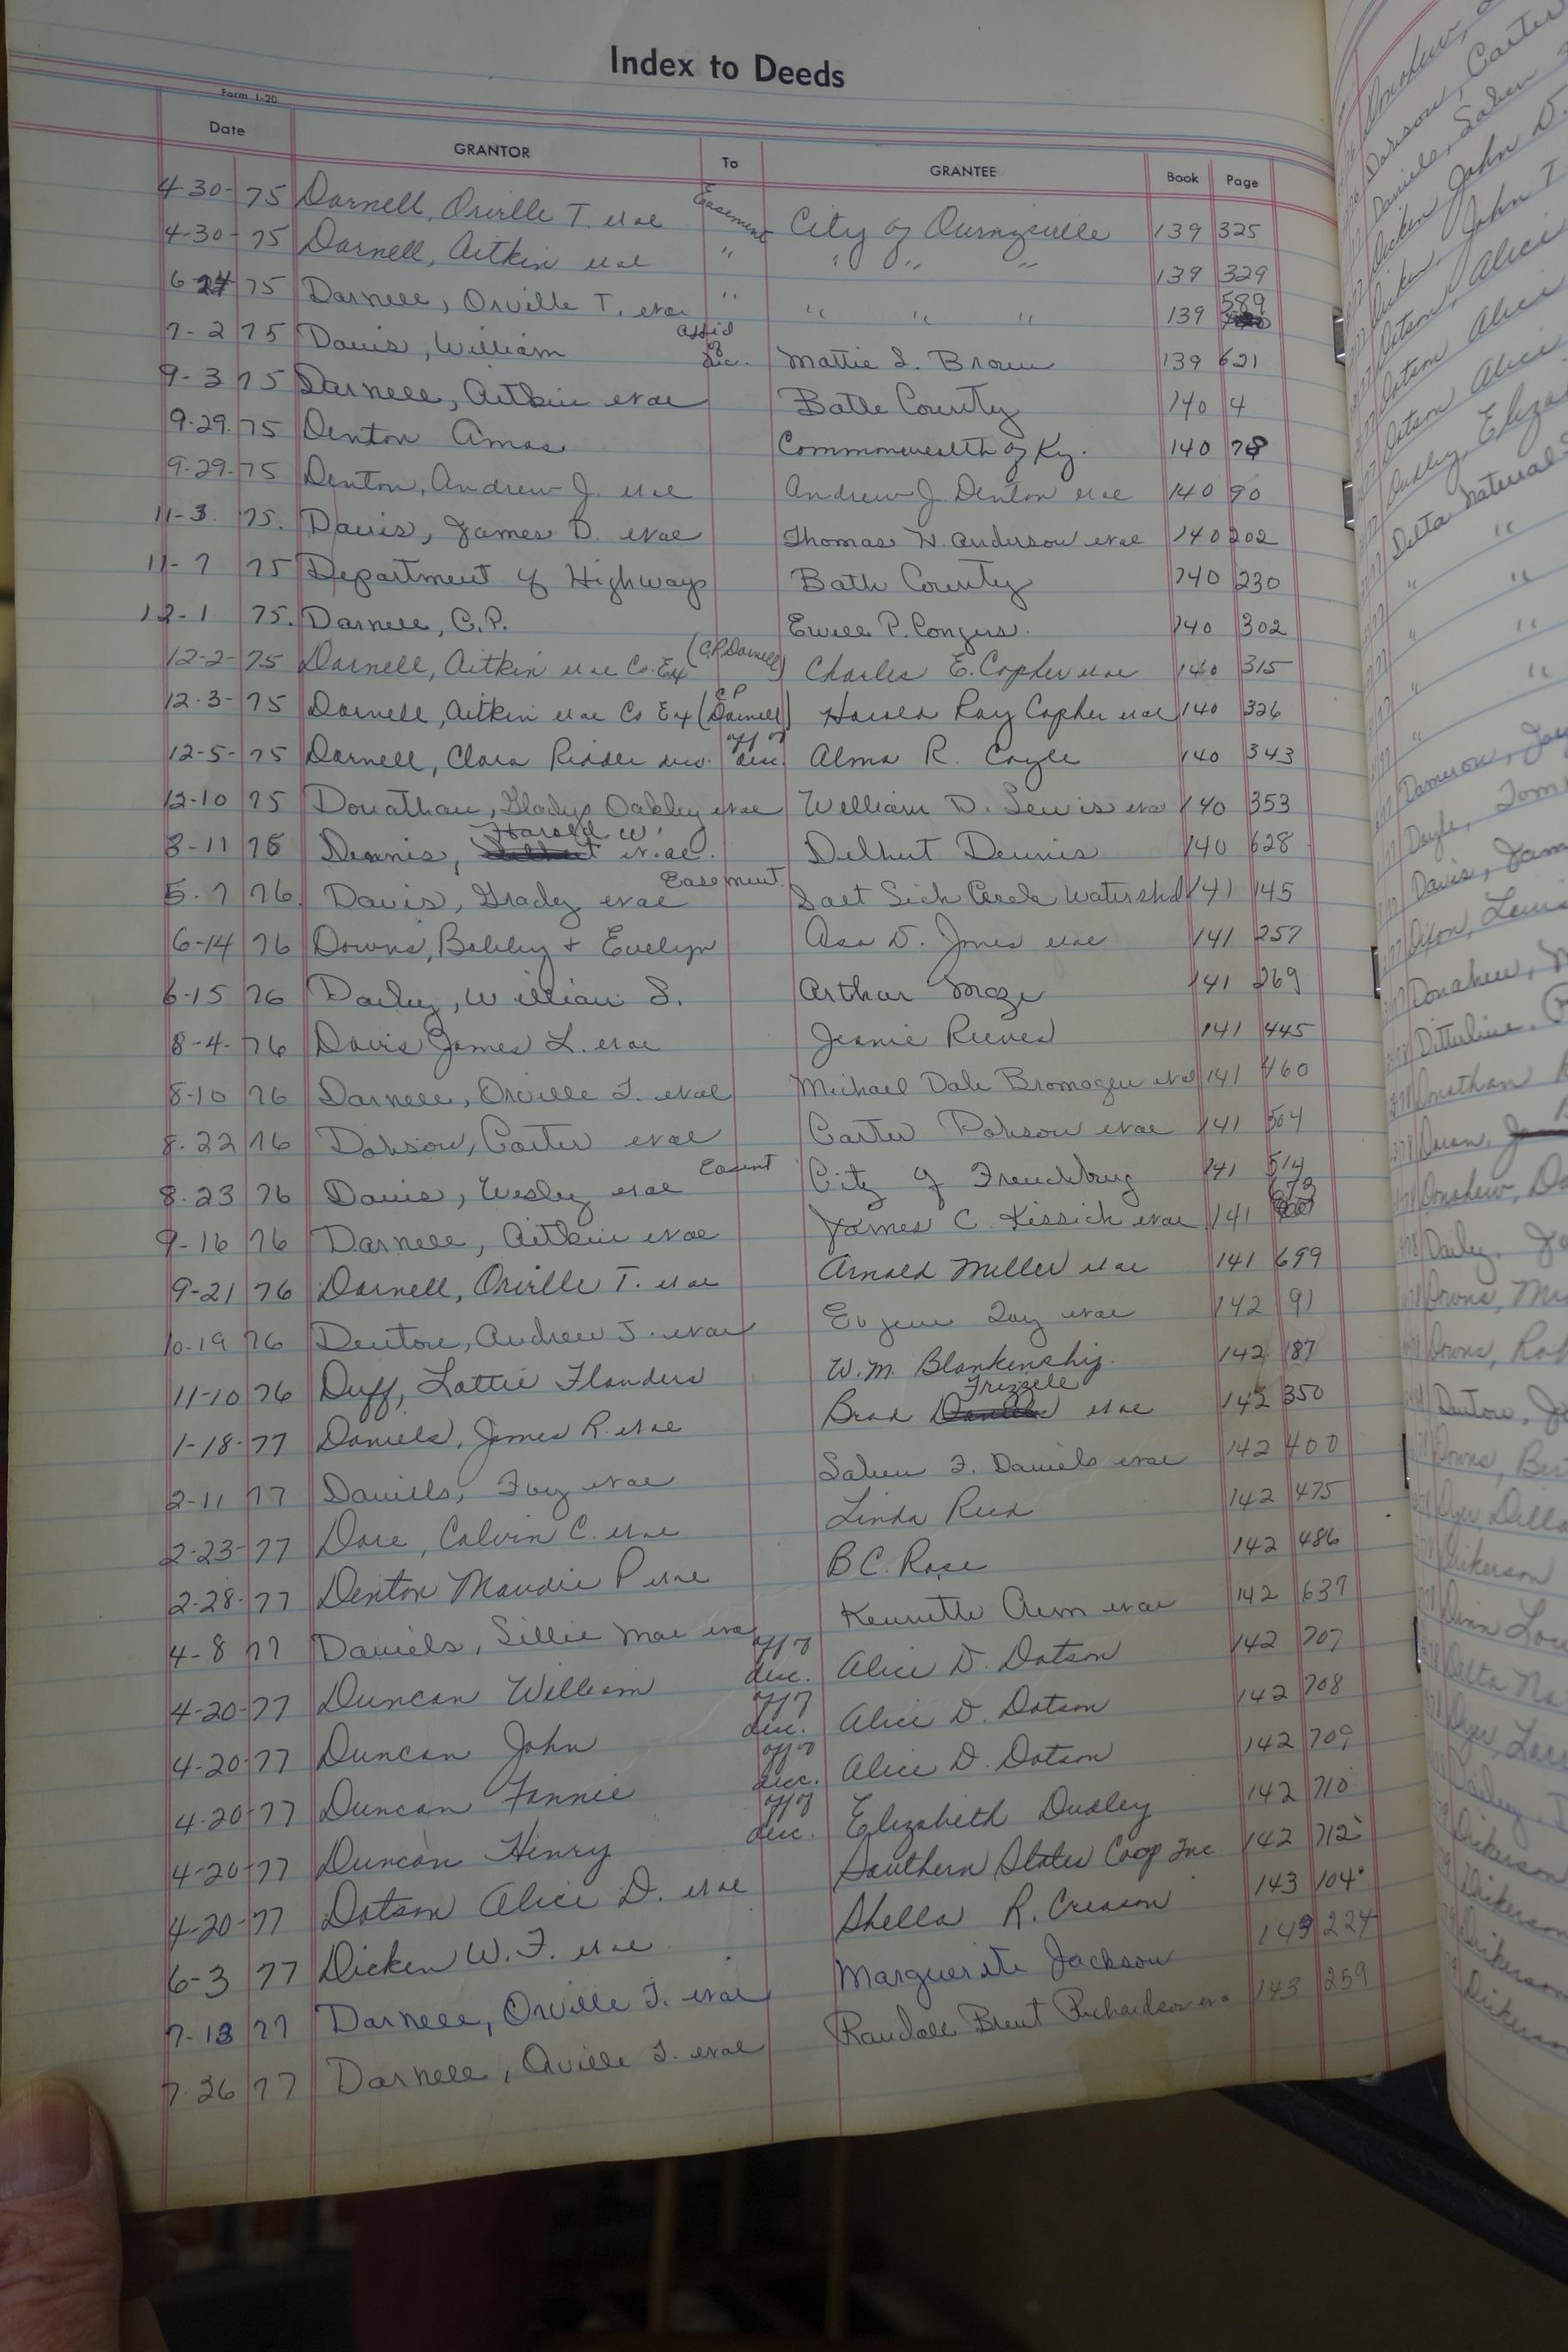 Index to Deeds
Form 1-20
Date GRANTOR To GRANTEE Book Page
4-30-75 Darnell, Orville T. et al Easement City of Owingsville 139 325
4-30-75 Darnell, Aitkin et al " " " " 139 329
6-24 75 Darnell, Orville T. et al " " " " 139 589
7-2 75 Davis, William Affid of dec. Mattie S. Brown 139 621
9-3 75 Darnell, Aitkin et al Bath County 140 4
9-29-75 Denton Amos Commonwealth of Ky. 140 78
9-29-75 Denton, Andrew J. et al Andrew J. Denton et al 140 90
11-3 75. Davis, James D. et al Thomas N. Anderson et al 140 202
11-7 75 Department of Highways Bath County 140 230
12-1 75. Darnell, C.P. Ewell P. Congers. 140 302
12-2-75 Darnell, Aitkin et al Co-Ex (C.P. Darnell) Charles E. Copher et al 140 315
12-3-75 Darnell, Aitkin et al Co Ex (C P Darnell) Harold Ray Copher et al 140 326
12-5-75 Darnell, Clara Ridder aff of dec. Alma R. Coyle 140 343
12-10 75 Donathan, Gladys Oakley et al William D. Lewis et al 140 353
3-11 76 Dennis, Harold W. et al. Delbert Dennis 140 628
5-7 76. Davis, Grady et al Easement Salt Lick Creek Watershed 141 145
6-14 76 Downs, Bobby & Evelyn Asa D. Jones et al 141 257
6-15 76 Dailey, William S. Arthur Maze 141 269
8-4-76 Davis James L. et al Jeanie Reeves 141 445
8-10 76 Darnell, Orville T. et al Michael Dale Bromagen et al 141 460
8-22 76 Dobson, Carter et al Carter Dobson et al 141 504
8-23 76 Davis, Wesley et al Easmt City of Frenchburg 141 514
9-16 76 Darnell, Aitkin et al James C. Kissick et al 141 673
9-21 76 Darnell, Orville T. et al Arnold Miller et al 141 699
10-19 76 Denton, Andrew J. et al Eugene Ray et al 142 91
11-10 76 Duff, Lottie Flanders W.M. Blankenship. 142 187
1-18-77 Daniels, James R. et al Brad Frizzell et al 142 350
2-11 77 Daniels, Foy et al F. Daniels et al 142 400
2-23-77 Dare, Calvin C. et al Linda Reed 142 475
2-28-77 Denton Maudie P et al B C. Rose 142 486
4-8 77 Daniels, Lillie Mae et al Kenneth et al 142 637
4-20-77 Duncan William aff of dec. Alice D. Dotson 142 707
4-20-77 Duncan John aff of dec. Alice D. Dotson 142 708
4-20-77 Duncan Fannie aff of dec. Alice D. Dotson 142 709
4-20-77 Duncan Henry aff of dec. Elizabeth Dudley 142 710
4-20-77 Dotson Alice D. et al Southern States Coop Inc. 142 712
6-3 77 Dicken W.F. et al Shella R. Creason 143 104
7-13 77 Darnell, Orville T. et al Marguerite Jackson 143 224
7-26 77 Darnell, Orville T. et al Randall Brent Richardson et al 143 259